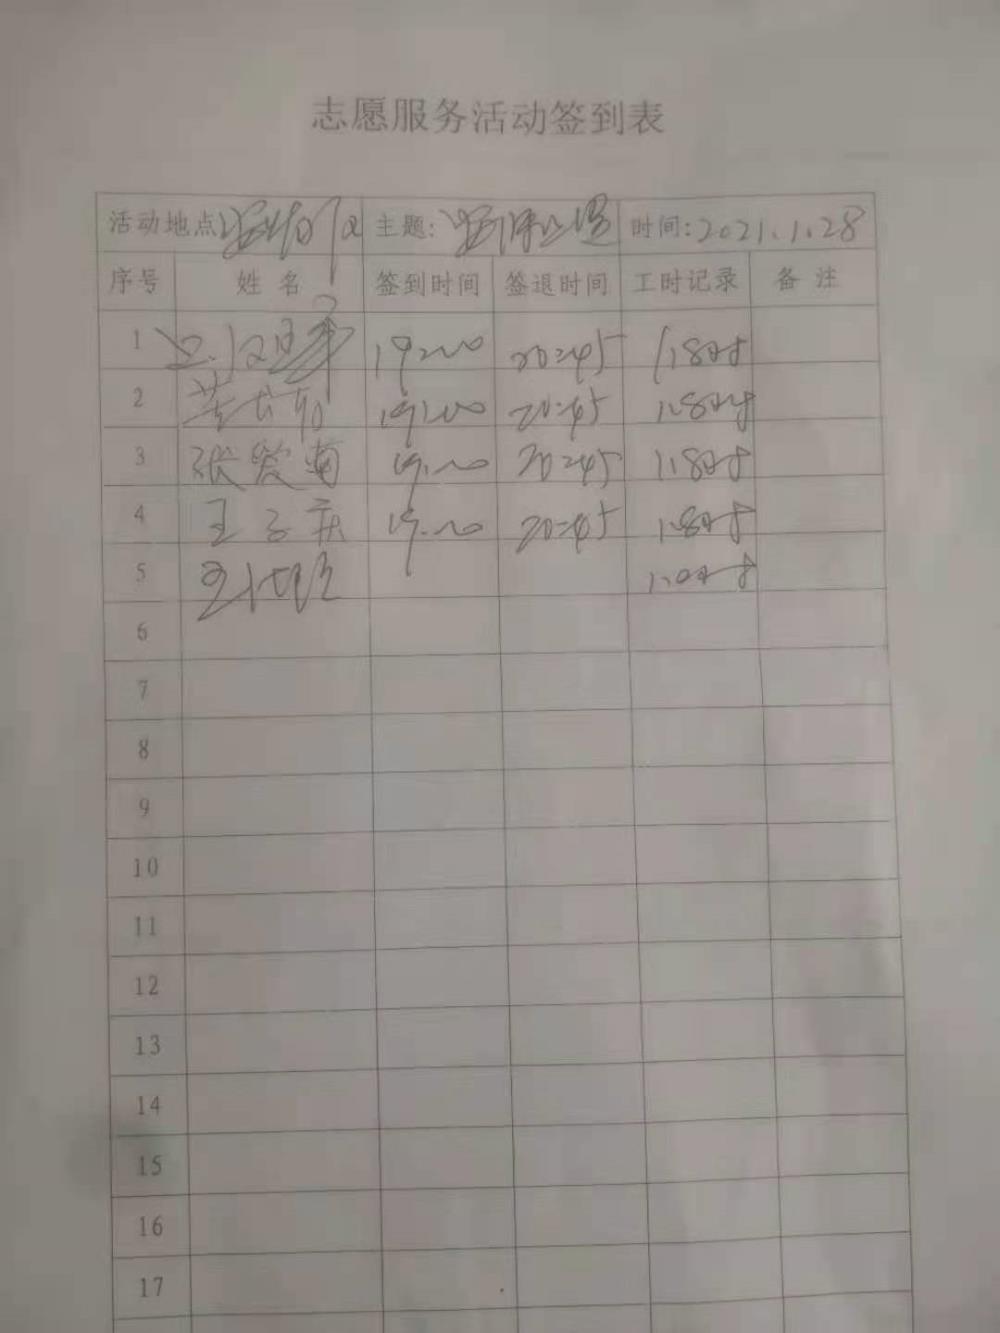 志愿服务活动签到表
活动地点 主题: 时间:2021.1.28
序号 姓名 签到时间 签退时间 工时记录 备注
1 19:00 20:45 1.8时
2 19:00 20:45 1.8时
3 张爱菊 19:00 20:45 1.8时
4 王子秋 19:00 20:45 1.8时
5 1.0时
6
7
8
9
10
11
12
13
14
15
16
17